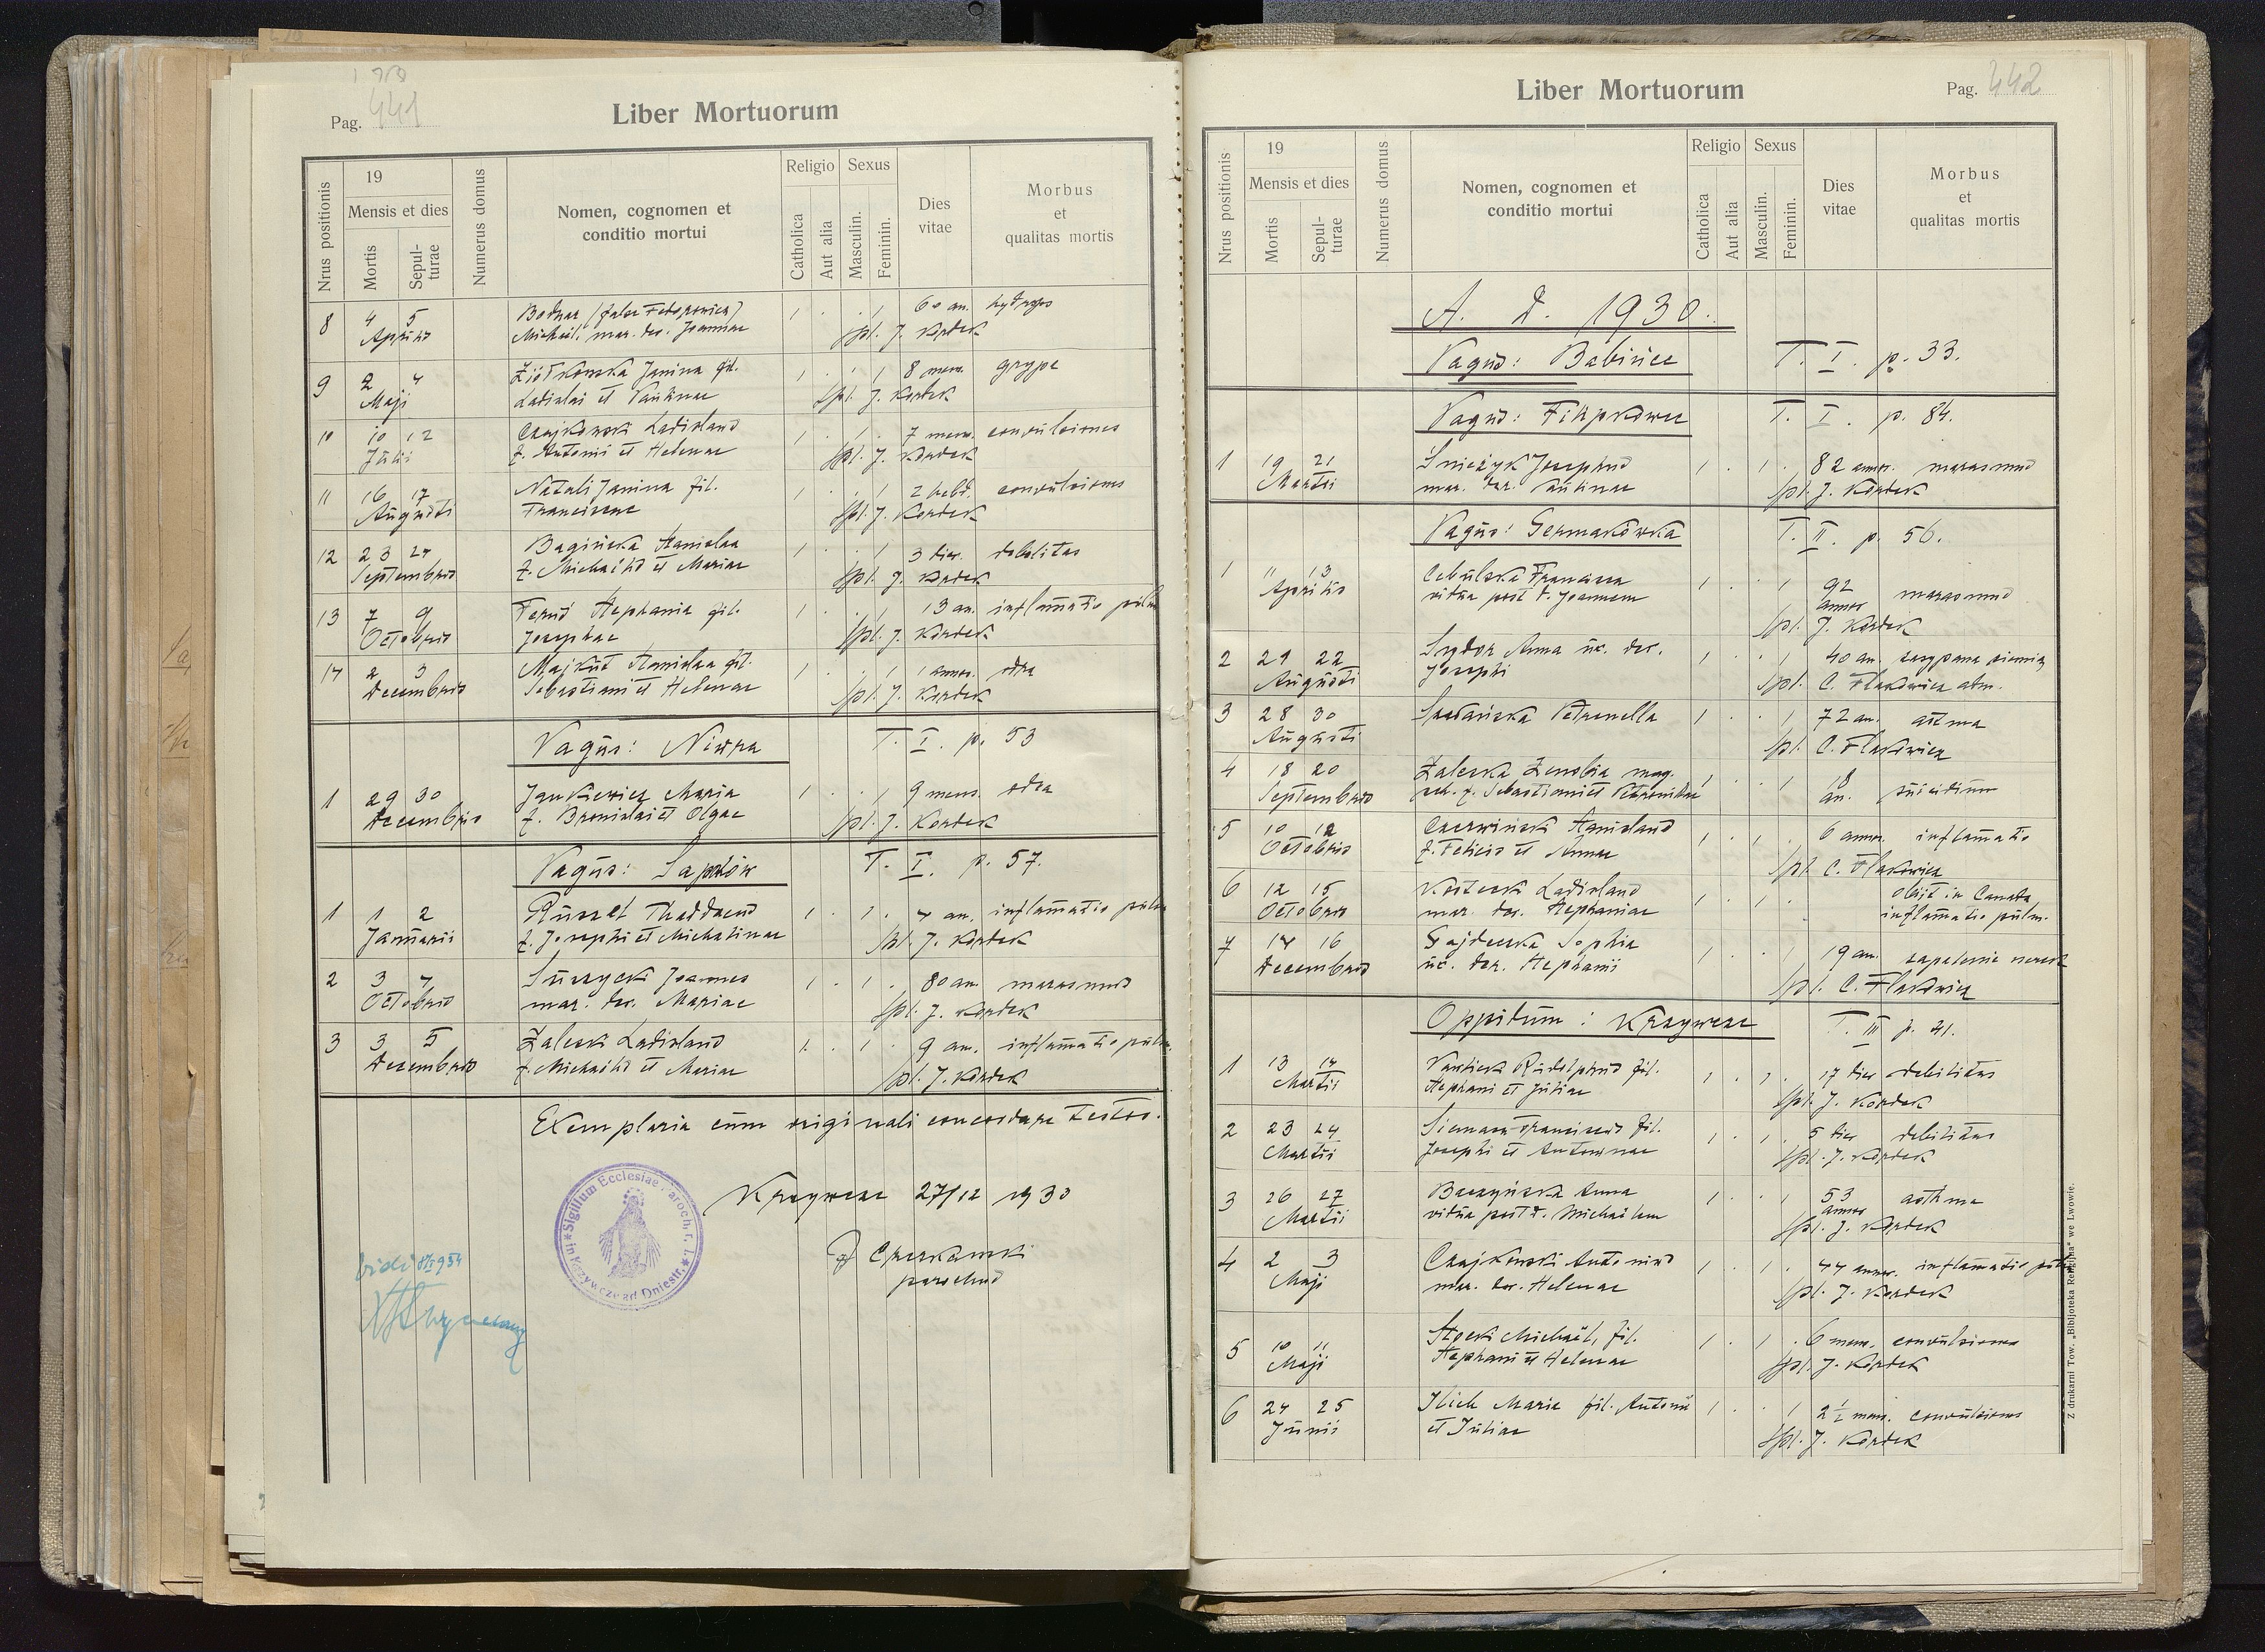 Pag. 441
Liber Mortuorum
Nrus positionis
19
Mensis et dies
Mortis
Sepul-
turae
Numerus domus
Nomen, cognomen et
conditio mortui
Religio
Catholica
Aut alia
Sexus
Masculin.
Feminin.
Dies
vitae
Morbus
et
qualitas mortis
8 4 5 Bodnar 1 . . 1 60 an. hydrops
Aprilis Michaël, mar. der. Joannae spl. J. Kordek
9 2 4 Ziółkowska Janina fil. 1 . . 1 8 mens. grype
Maji Ladislai et Paulinae spl. J. Kordek
10 10 12 Czajkowski Ladislaus 1 . 1 . 7 mens. convulsiones
Julii f. Antonii et Helenae spl. J. Kordek
11 16 17 Natali Janina fil. 1 . . 1 2 hebd. convulsiones
Augusti Franciscae spl. J. Kordek
12 23 24 Bagińska Stanislaa 1 . . 1 3 dier. debilitas
Septembris f. Michaëlis et Mariae spl. J. Kordek
13 7 9 Stephania fil. 1 . . 1 13 an. inflamatio pulm
Octobris Josephae spl. J. Kordek
14 2 3 Majkut Stanislaa fil. 1 . . 1 1 annor. odra
Decembris Sebastiani et Helenae spl. J. Kordek
Pagus: Niwra T. I. p. 53
1 29 30 Jankiewicz Maria 1 . . 1 9 mens. odra
Decembris f. Bronislai et Olgae spl. J. Kordek
Pagus: Sapohów T. I. p. 57.
1 1 2 Thaddaeus 1 . 1 . 4 an. inflamatio pulm
Januarii f. Josephi et Michalinae spl. J. Kordek
2 3 4 Joannes 1 . 1 . 80 an. marasmus
Octobris mar. der. Mariae spl. J. Kordek
3 3 5 Zaleski Ladislaus 1 . 1 . 9 an. inflamatio pulm.
Decembris f. Michaëlis et Mariae spl. J. Kordek
Exemplaria cum originali concordare testor.
Krzywcze 27/12 1930
parochus
Sigillum Ecclesiae Paroch. r. l. in Krzywcze ad Dniestr.
vidi
Liber Mortuorum
Pag. 442
Nrus positionis
19
Mensis et dies
Mortis
Sepul-
turae
Numerus domus
Nomen, cognomen et
conditio mortui
Religio
Catholica
Aut alia
Sexus
Masculin.
Feminin.
Dies
vitae
Morbus
et
qualitas mortis
A. D. 1930.
Pagus: Babińce T. I. p. 33.
Pagus: Filipkowce T. I. p. 84.
1 19 21 Śnieżyk Josephus 1 . 1 . 82 annor. marasmus
Martii mar. der. Paulinae spl. J. Kordek
Pagus: Germakówka T. II. p. 56.
1 11 13 Cebulska Francisca 1 . . 1 92 marasmus
Aprilis vidua post d. Joannem annor
spl. J. Kordek
2 21 22 Sydor Anna ux. der. 1 . . 1 40 an. zasypana ziemią
Augusti Josephi spl. C. Flakowicz adm.
3 28 30 Petronella 1 . . 1 72 an. astma
Augusti spl. C. Flakowicz
4 18 20 Zaleska Zenobia mag. 1 . . 1 18 suicidium
Septembris sch. f. Sebastiani et Petronillae an.
5 10 12 Czerwiński Stanislaus 1 . 1 . 6 annor. inflamatio
Octobris f. Felicis et Annae spl. C. Flakowicz
6 12 15 Ladislaus 1 . 1 . obiit in Canada
Octobris mar. der. Stephaniae inflamatio pulm.
7 14 16 Sophia 1 . . 1 19 an. zapalenie nerek
Decembris ux. der. Stephanii spl. C. Flakowicz
Oppidum: Krzywcze T. III p. 41.
1 13 14 Rudolphus fil. 1 . 1 . 17 dier debilitas
Martii Stephani et Juliae spl. J. Kordek
2 23 24 Franciscus fil. 1 . 1 . 5 dier debilitas
Martii Josephi et Antoninae spl. J. Kordek
3 26 27 Baczyńska Anna 1 . . 1 53 asthma
Martii vidua post d. Michaëlem annor
spl. J. Kordek
4 2 3 Czajkowski Antonius 1 . 1 . 44 annor. inflamatio pulm
Maji mar. der. Helenae spl. J. Kordek
5 10 11 Michaël, fil. 1 . 1 . 6 mens. convulsiones
Maji Stephani et Helenae spl. J. Kordek
6 24 25 Ilich Maria fil. Antonii 1 . . 1 2½ mens. convulsiones
Junii et Juliae spl. J. Kordek
Z drukarni Tow. „Bibljoteka Religijna" we Lwowie.